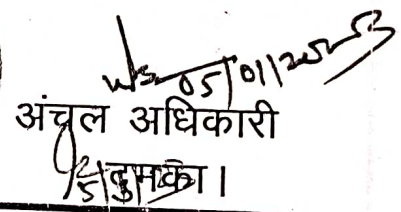 05/01/2023
अंचल अधिकारी
दुमका।